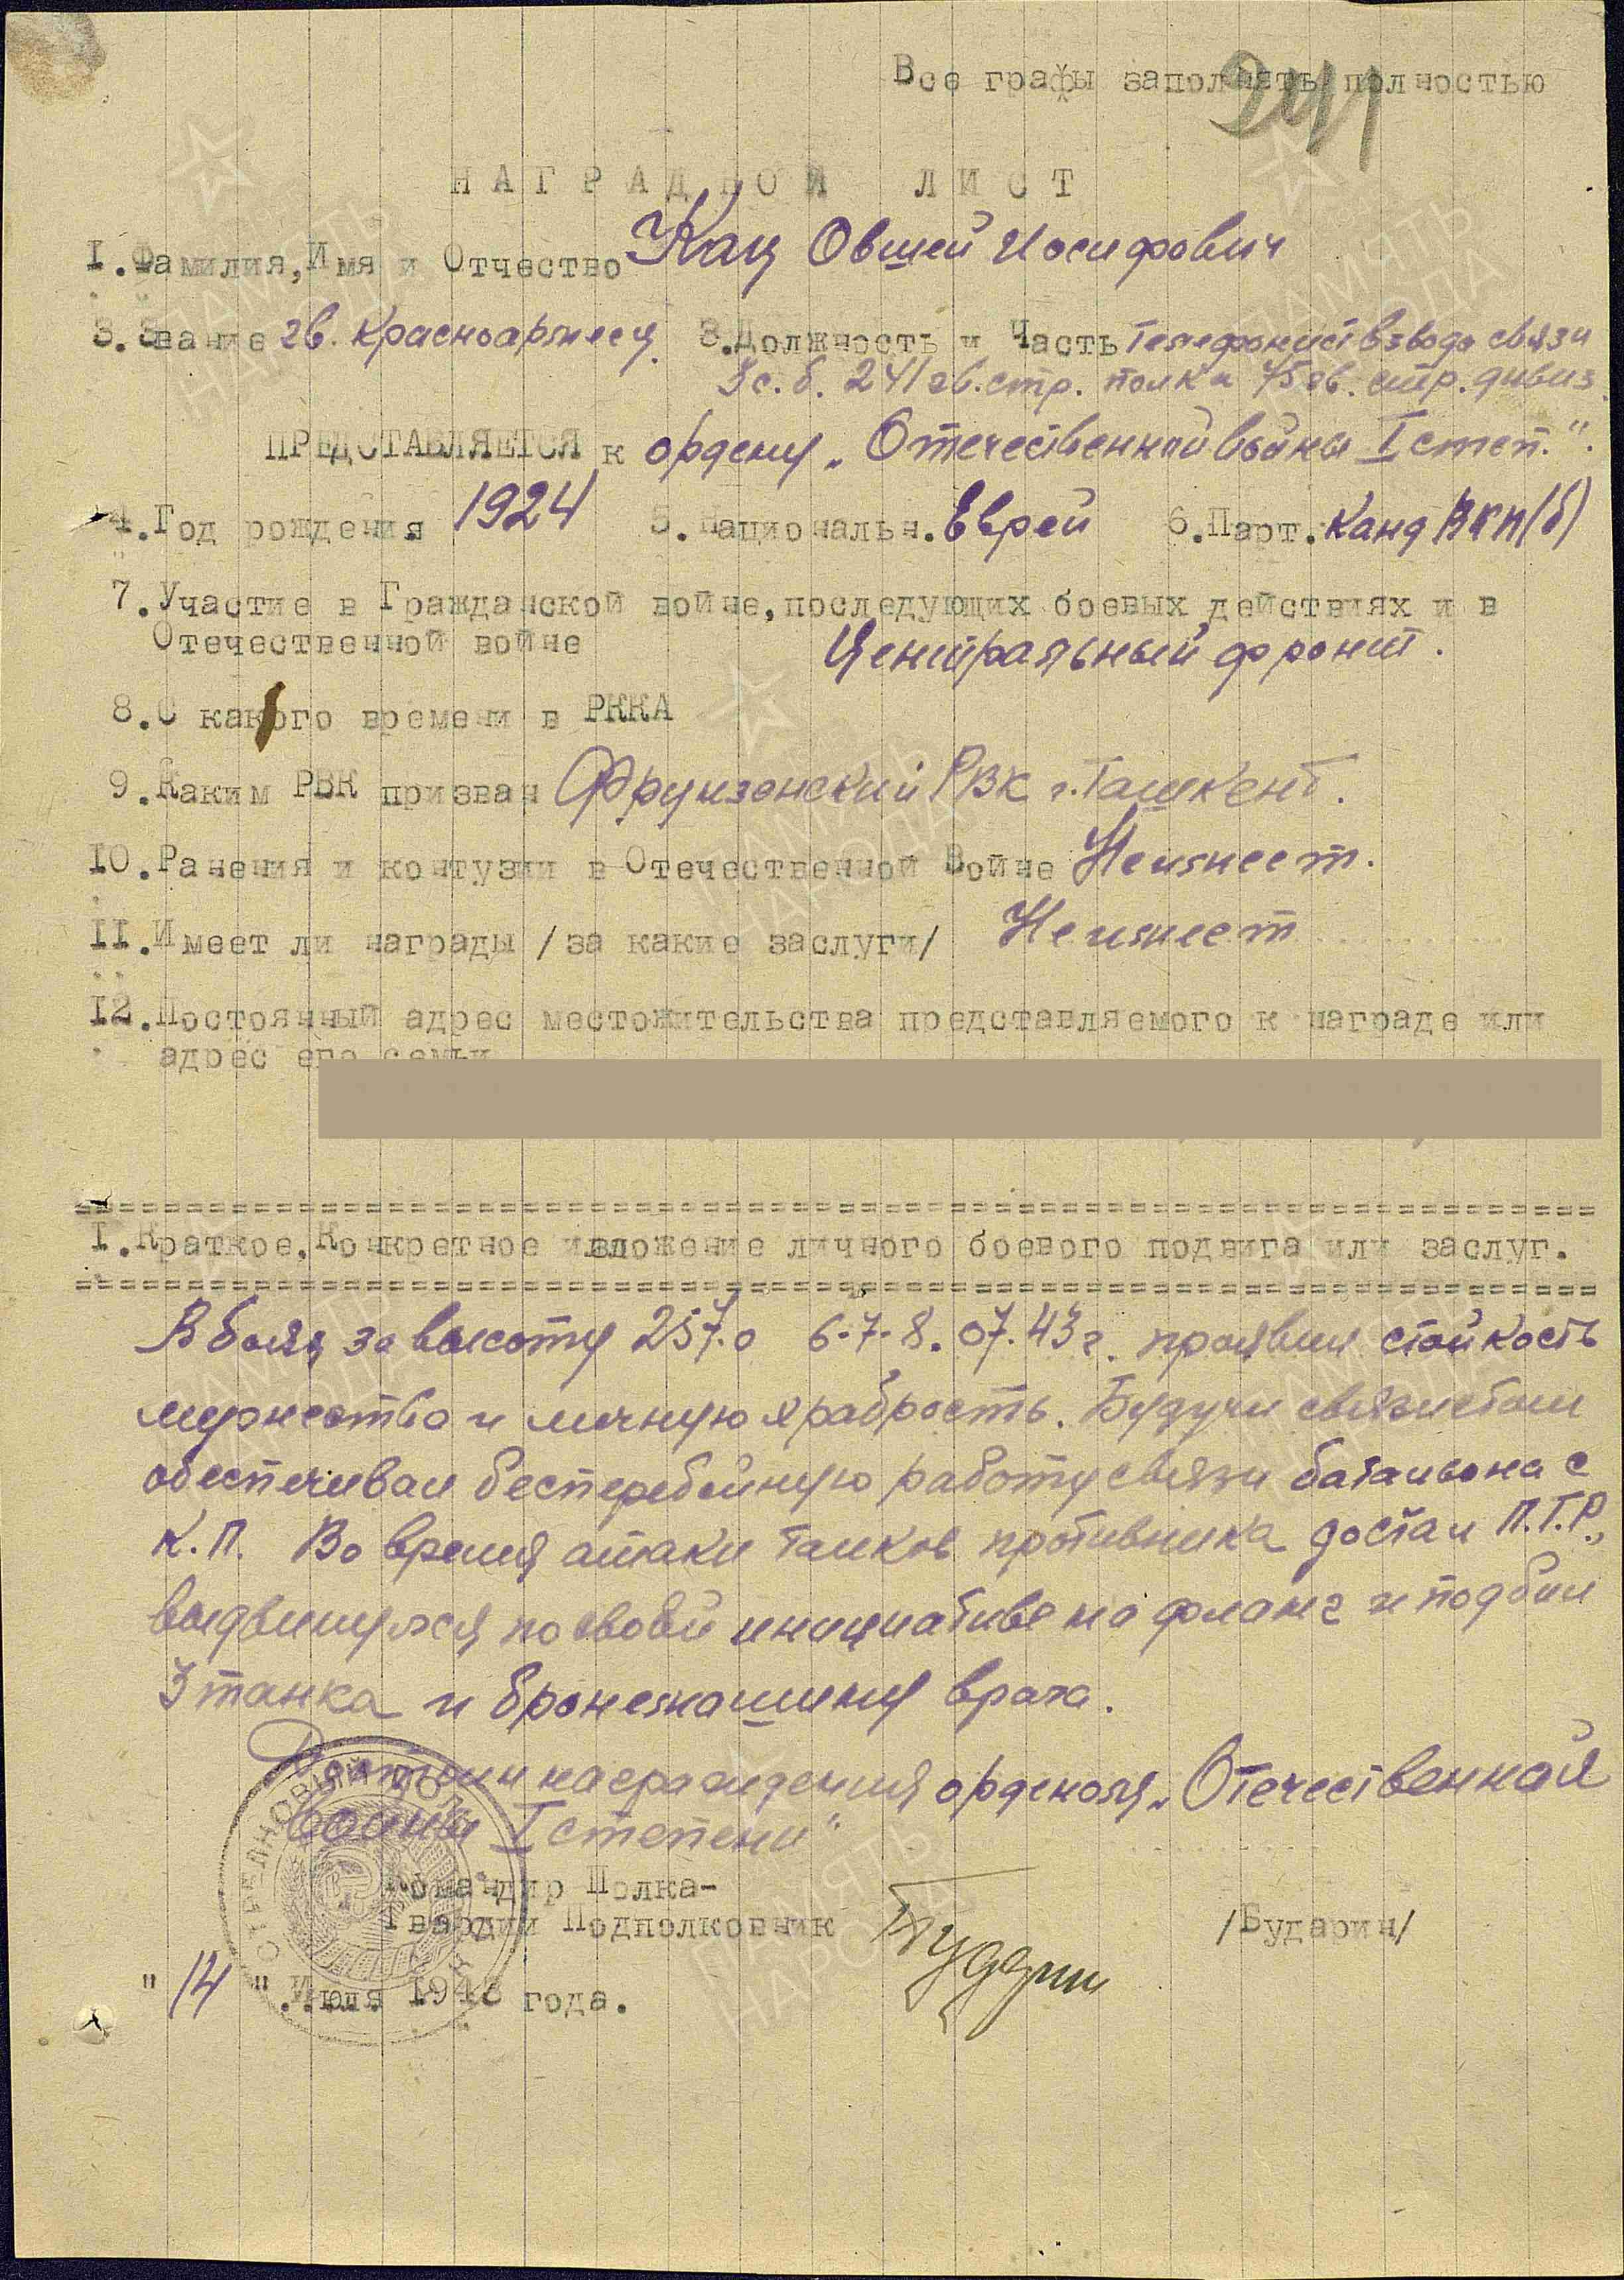 Все графы заполнять полностью
241
НАГРАДНОЙ ЛИСТ
I.Фамилия,Имя и Отчество Кац Овшей Иосифович
3.Звание гв. Красноармеец 3.Должность и Часть Телефонист взвода связи
3 с.б. 241 гв. стр. полка 75 гв. стр. дивиз.
ПРЕДСТАВЛЯЕТСЯ к ордену „Отечественной войны I степ.".
4.Год рождения 1924 5.Национальн. Еврей 6.Парт. Канд ВКП(б)
7.Участие в Гражданской войне,последующих боевых действиях и в
Отечественной войне Центральный фронт.
8.С какого времени в РККА
9.Каким РВК призван Фрунзенский РВК г. Ташкент.
IO.Ранения и контузии в Отечественной Войне Не имеет.
II.Имеет ли награды /за какие заслуги/ Не имеет
I2.Постоянный адрес местожительства представляемого к награде или
адрес его семьи
I.Краткое,Конкретное изложение личного боевого подвига или заслуг.
В боях за высоту 257.0 6-7-8.07.43 г. проявил стойкость
мужество и личную храбрость. Будучи связистом
обеспечивал бесперебойную работу связи батальона с
К.П. Во время атаки танков противника достал П.Т.Р.,
выдвинулся по своей инициативе на фланг и подбил
3 танка и бронемашину врага.
Достоин награждения орденом „Отечественной
войны I степени"
Командир Полка-
Гвардии Подполковник /Бударин/
"14" Июля 1943 года.
ПАМЯТЬ НАРОДА